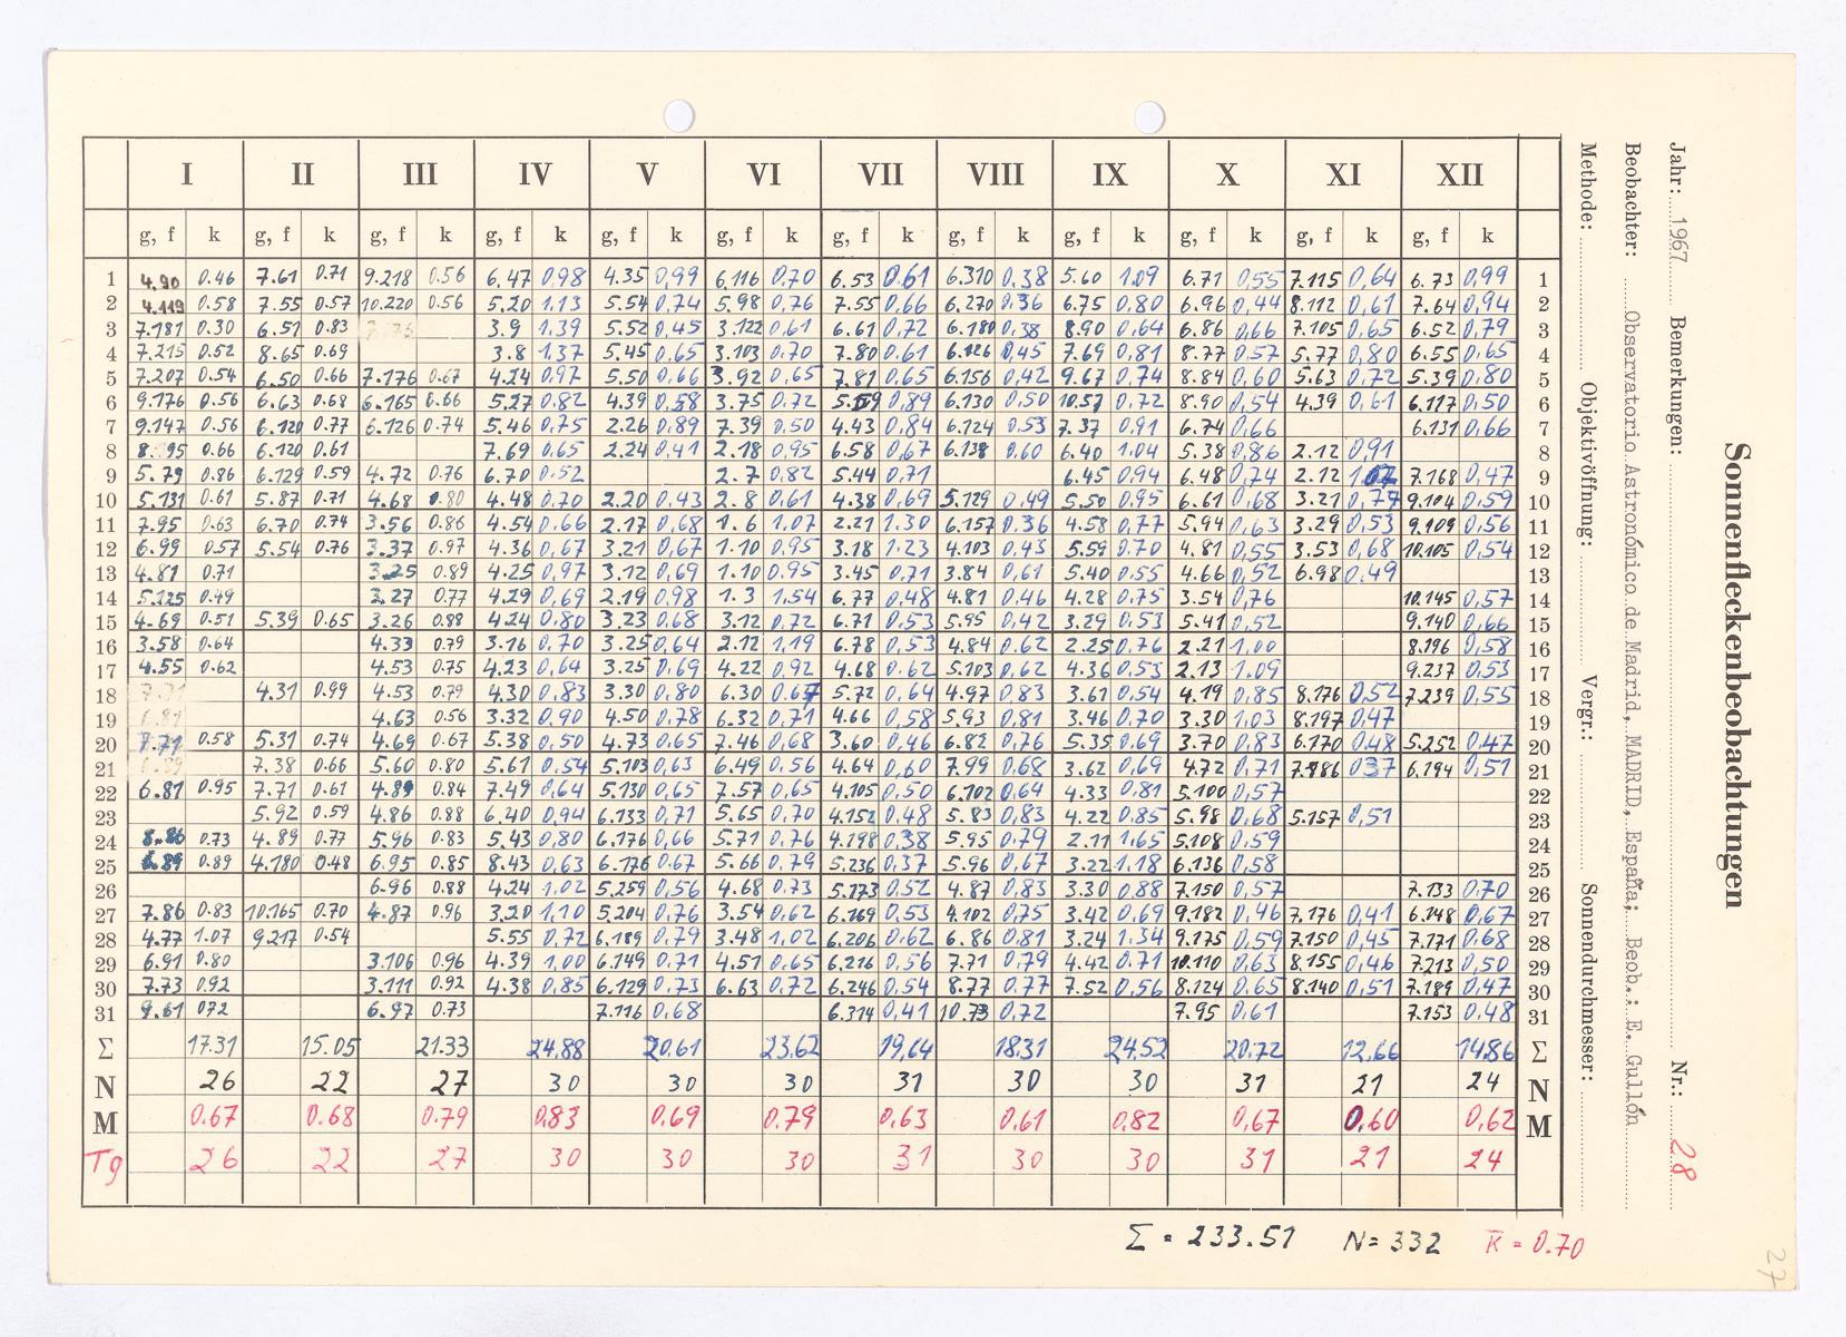 Sonnenfleckenbeobachtungen
Jahr: 1967 Bemerkungen: Nr.: 28
Beobachter: Observatorio Astronómico de Madrid, MADRID, España; Beob.: E. Gullón
Methode: Objektivöffnung: Vergr.: Sonnendurchmesser:
I II III IV V VI VII VIII IX X XI XII
g, f k g, f k g, f k g, f k g, f k g, f k g, f k g, f k g, f k g, f k g, f k g, f k
1 4.90 0.46 7.61 0.71 9.218 0.56 6.47 0,98 4.35 0,99 6,116 0,70 6.53 0.61 6.310 0,38 5.60 1.09 6.71 0,55 7.115 0,64 6.73 0,99 1
2 4.119 0.58 7.55 0.57 10.220 0.56 5.20 1.13 5.54 0,74 5.98 0,76 7.55 0,66 6.270 0,36 6.75 0,80 6.96 0,44 8.112 0,61 7.64 0,94 2
3 7.181 0.30 6.51 0.83 3.9 1.39 5.52 0,45 3.122 0,61 6.61 0,72 6.180 0,38 8.90 0,64 6.86 0,66 7.105 0,65 6.52 0,79 3
4 7.215 0.52 8.65 0.69 3.8 1,37 5.45 0,65 3.103 0,70 7.80 0,61 6.126 0,45 7.69 0,81 8.77 0,57 5.77 0,80 6.55 0,65 4
5 7.207 0.54 6.50 0.66 7.176 0.67 4.24 0,97 5.50 0,66 3.92 0,65 7.81 0,65 6.156 0,42 9.67 0,74 8.84 0,60 5.63 0,72 5.39 0,80 5
6 9.176 0.56 6.63 0.68 6.165 0.66 5.27 0,82 4.39 0,58 3.75 0,72 5.59 0,89 6.130 0,50 10.57 0,72 8.90 0,54 4.39 0,61 6.117 0,50 6
7 9.147 0.56 6.120 0.77 6.126 0.74 5.46 0,75 2.26 0,89 7.39 0,50 4.43 0,84 6.124 0.53 7.37 0.91 6.74 0,66 6.131 0,66 7
8 0.66 6.120 0.61 7.69 0,65 2.24 0,41 2.18 0,95 6.58 0,67 6.138 0,60 6.40 1.04 5.38 0,86 2.12 0,91 8
9 5.79 0.86 6.129 0.59 4.72 0.76 6.70 0.52 2.7 0,82 5.44 0,71 6.45 0,94 6.48 0,74 2.12 7.168 0,47 9
10 5.131 0.61 5.87 0.71 4.68 0.80 4.48 0,70 2.20 0,43 2.8 0,61 4.38 0,69 5.129 0,49 5.50 0.95 6.61 0,68 3.21 0,79 9.104 0,59 10
11 7.95 0.63 6.70 0.74 3.56 0.86 4.54 0,66 2.17 0,68 1.6 1,07 2.21 1.30 6.157 0.36 4.58 0,77 5.94 0,63 3.29 0,53 9.109 0,56 11
12 6.99 0.57 5.54 0.76 3.37 0.97 4.36 0,67 3.21 0,67 1.10 0.95 3.18 1.23 4.103 0,43 5.59 0.70 4.81 0,55 3.53 0,68 10.105 0,54 12
13 4.81 0.71 3.25 0.89 4.25 0,97 3.12 0,69 1.10 0.95 3.45 0,71 3.84 0,61 5.40 0.55 4.66 0,52 6.98 0,49 13
14 5.125 0.49 3.27 0.77 4.29 0,69 2.19 0,98 1.3 1,54 6.77 0,48 4.81 0,46 4.28 0,75 3.54 0,76 10.145 0,57 14
15 4.69 0.51 5.39 0.65 3.26 0.88 4.24 0,80 3.23 0,68 3.12 0,72 6.71 0,53 5.95 0,42 3.29 0,53 5.41 0,52 9.140 0,66 15
16 3.58 0.64 4.33 0.79 3.16 0,70 3.25 0,64 2.12 1,19 6.78 0,53 4.84 0,62 2.25 0,76 2.21 1,00 8.196 0,58 16
17 4.55 0.62 4.53 0.75 4.23 0,64 3.25 0,69 4.22 0,92 4.68 0,62 5.103 0,62 4.36 0,53 2.13 1.09 9.237 0,53 17
18 4.31 0.99 4.53 0.79 4.30 0,83 3.30 0,80 6.30 0.67 5.72 0,64 4.97 0,83 3.61 0,54 4.19 0,85 8.176 0,52 7.239 0,55 18
19 6.81 4.63 0.56 3.32 0,90 4.50 0,78 6.32 0,71 4.66 0,58 5.93 0,81 3.46 0,70 3.30 1,03 8.197 0,47 19
20 7.71 0.58 5.31 0.74 4.69 0.67 5.38 0,50 4.73 0,65 7.46 0,68 3.60 0,46 6.82 0,76 5.35 0,69 3.70 0,83 6.170 0,48 5.252 0,47 20
21 7.38 0.66 5.60 0.80 5.61 0,54 5.103 0,63 6.49 0,56 4.64 0,60 7.99 0,68 3.62 0,69 4.72 0,71 7.186 0,37 6.194 0,51 21
22 6.81 0.95 7.71 0.61 4.89 0.84 7.49 0,64 5.130 0,65 7.57 0,65 4.105 0,50 6.102 0,64 4.33 0,81 5.100 0,57 22
23 5.92 0.59 4.86 0.88 6.40 0,94 6.133 0,71 5.65 0,70 4.152 0,48 5.83 0,83 4.22 0,85 5.98 0,68 5.157 0,51 23
24 8.86 0.73 4.89 0.77 5.96 0.83 5.43 0,80 6.176 0,66 5.71 0,76 4.198 0,38 5.95 0,79 2.11 1.65 5.108 0,59 24
25 6.89 0.89 4.180 0.48 6.95 0.85 8.43 0,63 6.176 0.67 5.66 0,79 5.236 0,37 5.96 0,67 3.22 1.18 6.136 0,58 25
26 6.96 0.88 4.24 1,02 5.259 0,56 4.68 0,73 5.173 0,52 4.87 0,83 3.30 0,88 7.150 0,57 7.133 0,70 26
27 7.86 0.83 10.165 0.70 4.87 0.96 3.20 1,10 5,204 0,76 3.54 0,62 6.169 0,53 4.102 0,75 3.42 0,69 9.182 0,46 7,176 0,41 6.148 0,67 27
28 4.77 1.07 9.217 0.54 5.55 0,72 6.189 0,79 3.48 1,02 6.206 0,62 6.86 0,81 3.24 1.34 9.175 0,59 7.150 0,45 7.171 0,68 28
29 6.91 0.80 3.106 0.96 4.39 1,00 6.149 0,71 4.51 0,65 6.216 0,56 7.71 0,79 4.42 0.71 10.110 0,63 8.155 0,46 7.213 0,50 29
30 7.73 0.92 3.111 0.92 4.38 0,85 6.129 0,73 6.63 0,72 6.246 0,54 8.77 0.77 7.52 0,56 8.124 0,65 8.140 0,51 7.189 0,47 30
31 9.61 0.72 6.97 0.73 7.116 0,68 6.314 0,41 10.73 0,72 7.95 0,61 7.153 0,48 31
Σ 17.31 15.05 21.33 24,88 20,61 23,62 19,64 18,31 24,52 20,72 12,66 14,86 Σ
N 26 22 27 30 30 30 31 30 30 31 21 24 N
M 0.67 0.68 0.79 0,83 0,69 0.79 0,63 0,61 0,82 0,67 0,60 0,62 M
Tg 26 22 27 30 30 30 31 30 30 31 21 24
Σ = 233.51 N = 332 K̄ = 0.70
27